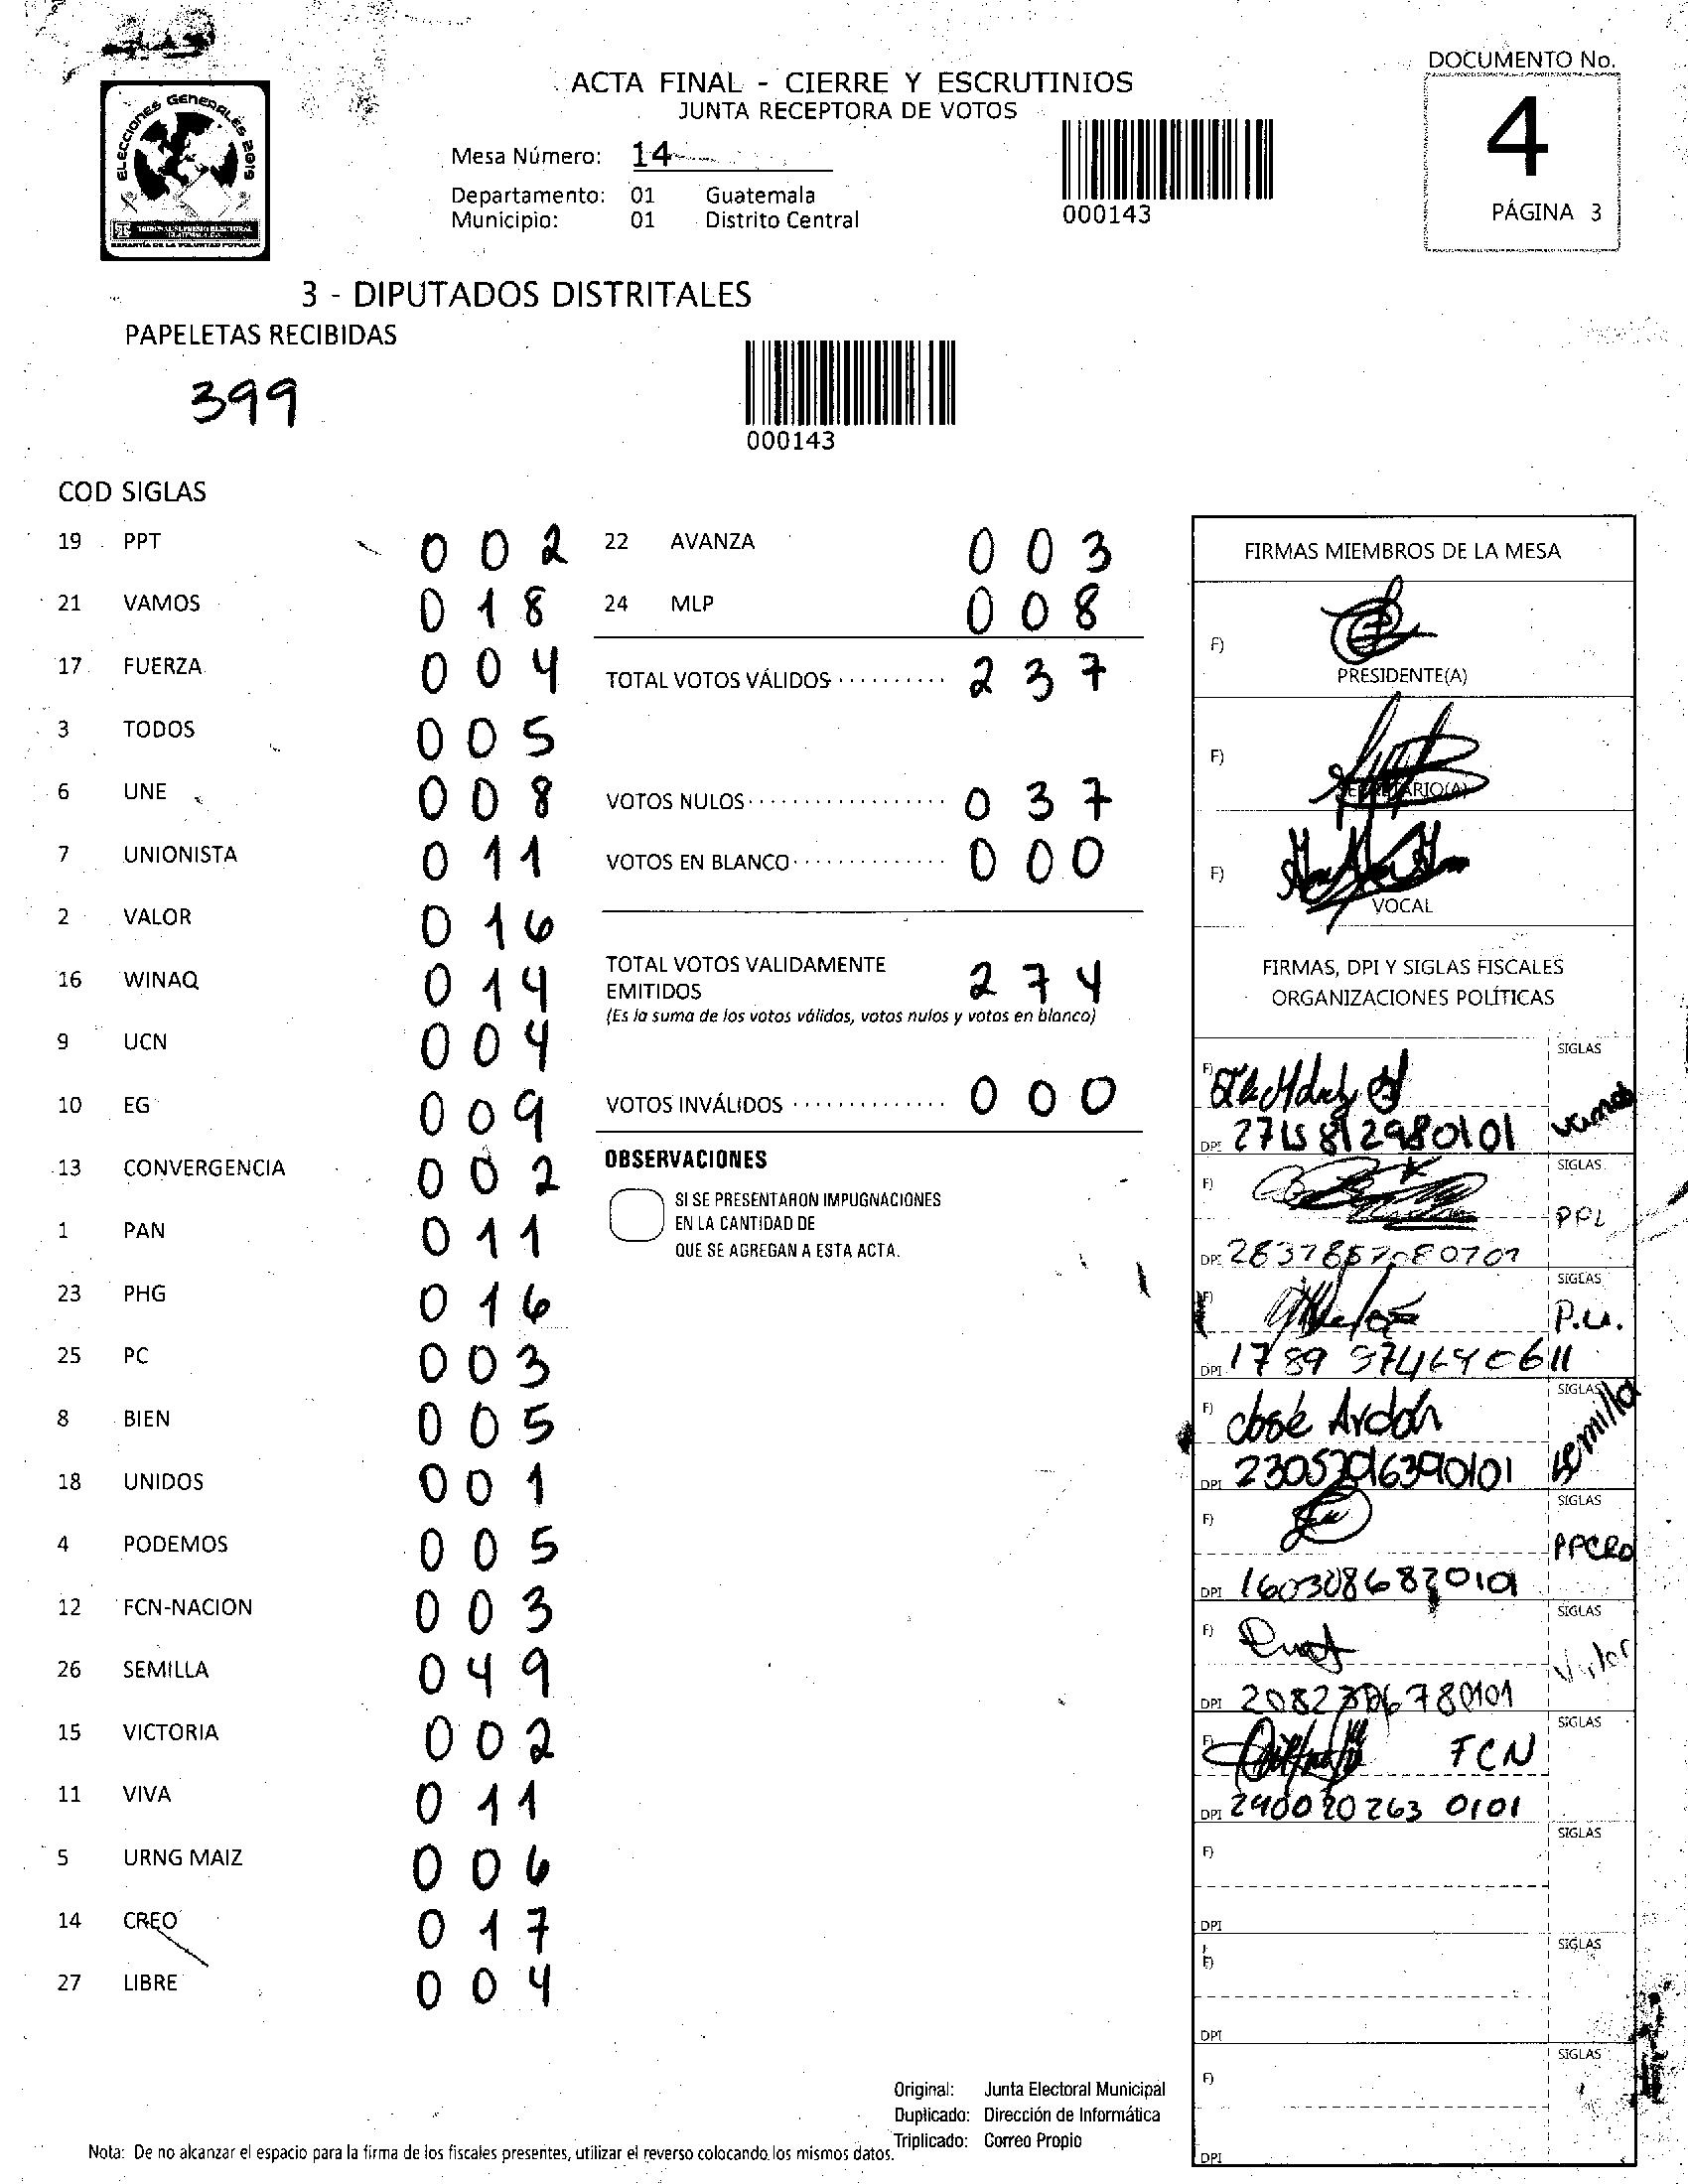 DOCUMENTO No.
4
PÁGINA 3
ELECCIONES GENERALES 2019
TRIBUNAL SUPREMO ELECTORAL
GUATEMALA, C.A.
GARANTÍA DE LA VOLUNTAD POPULAR
ACTA FINAL - CIERRE Y ESCRUTINIOS
JUNTA RECEPTORA DE VOTOS
Mesa Número: 14
Departamento: 01 Guatemala
Municipio: 01 Distrito Central
000143
3 - DIPUTADOS DISTRITALES
PAPELETAS RECIBIDAS
399
000143
COD SIGLAS
19 PPT 0 0 2
21 VAMOS 0 1 8
17 FUERZA 0 0 4
3 TODOS 0 0 5
6 UNE 0 0 8
7 UNIONISTA 0 1 1
2 VALOR 0 1 6
16 WINAQ 0 1 4
9 UCN 0 0 4
10 EG 0 0 9
13 CONVERGENCIA 0 0 2
1 PAN 0 1 1
23 PHG 0 1 6
25 PC 0 0 3
8 BIEN 0 0 5
18 UNIDOS 0 0 1
4 PODEMOS 0 0 5
12 FCN-NACION 0 0 3
26 SEMILLA 0 4 9
15 VICTORIA 0 0 2
11 VIVA 0 1 1
5 URNG MAIZ 0 0 6
14 CREO 0 1 7
27 LIBRE 0 0 4
22 AVANZA 0 0 3
24 MLP 0 0 8
TOTAL VOTOS VÁLIDOS 2 3 7
VOTOS NULOS 0 3 7
VOTOS EN BLANCO 0 0 0
TOTAL VOTOS VALIDAMENTE
EMITIDOS 2 7 4
(Es la suma de los votos válidos, votos nulos y votos en blanco)
VOTOS INVÁLIDOS 0 0 0
OBSERVACIONES
SI SE PRESENTARON IMPUGNACIONES
EN LA CANTIDAD DE
QUE SE AGREGAN A ESTA ACTA.
FIRMAS MIEMBROS DE LA MESA
F)
PRESIDENTE(A)
F)
SECRETARIO(A)
F)
VOCAL
FIRMAS, DPI Y SIGLAS FISCALES
ORGANIZACIONES POLÍTICAS
F) SIGLAS
DPI vamos
F) SIGLAS
PPL
DPI
F) SIGLAS
P.U.
DPI
F) José Ardón SIGLAS
DPI semilla
F) SIGLAS
DPI
F) SIGLAS
Valor
DPI
F) FCN SIGLAS
DPI 0101
F) SIGLAS
DPI
F) SIGLAS
DPI
F) SIGLAS
DPI
Original: Junta Electoral Municipal
Duplicado: Dirección de Informática
Triplicado: Correo Propio
Nota: De no alcanzar el espacio para la firma de los fiscales presentes, utilizar el reverso colocando los mismos datos.